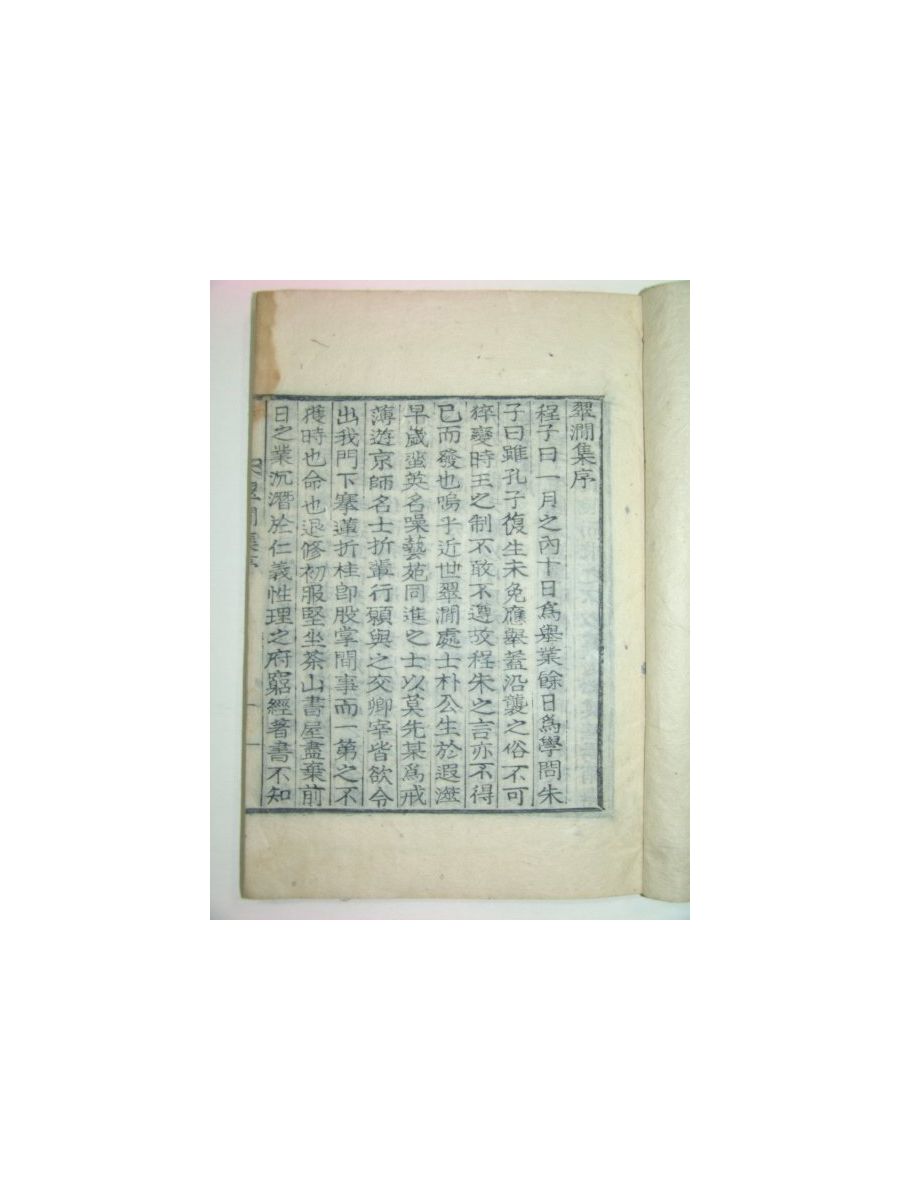 翠澗集序
程子曰一月之內十日爲擧業餘日爲學問朱
子曰雖孔子復生未免應擧蓋沿襲之俗不可
猝變時王之制不敢不遵故程朱之言亦不得
已而發也嗚乎近世翠澗處士朴公生於遐澨
早歲蜚英名噪藝苑同進之士以莫先某爲戒
薄遊京師名士折輩行願與之交卿宰皆欲令
出我門下搴蓮折桂卽股掌間事而一第之不
獲時也命也退修初服堅坐茶山書屋盡棄前
日之業沉潛於仁義性理之府窮經著書不知
翠澗集序
一